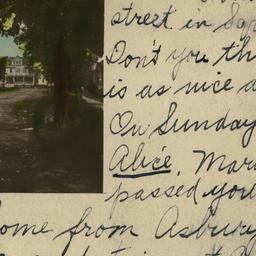 street in
Don't you th
is as nice a
On Sunday
Alice, Mar
passed you
ome from Asbury